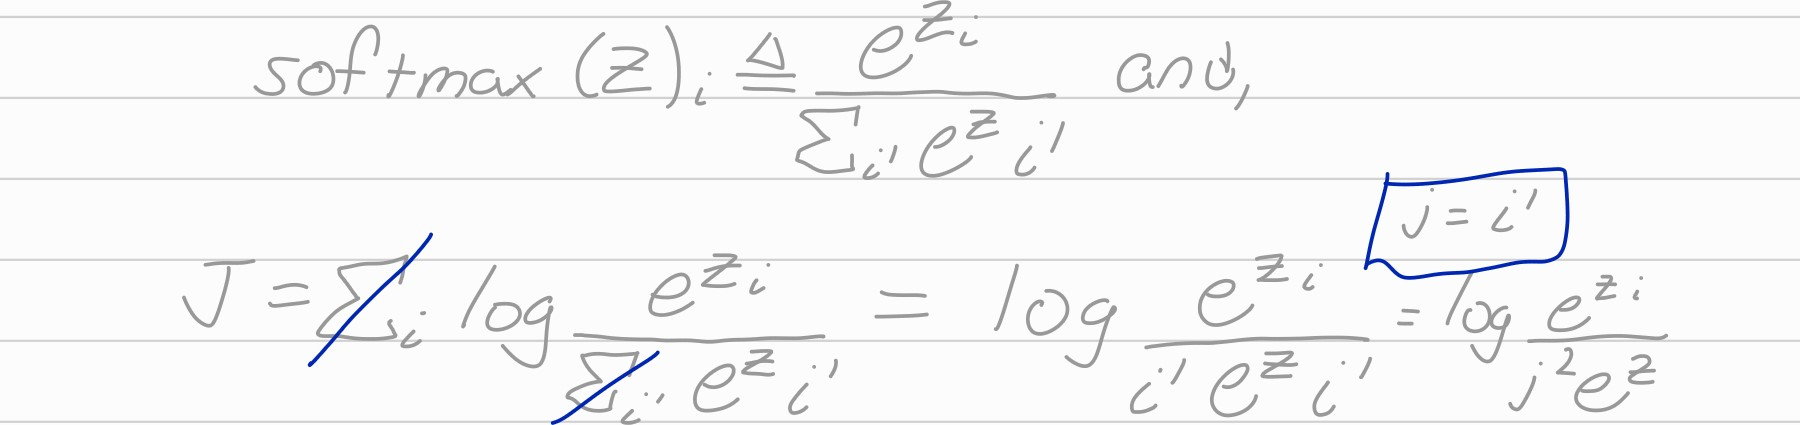 softmax (z)_i ≜ e^{z_i} / Σ_{i'} e^{z_{i'}} and,
j = i'
J = Σ_i log e^{z_i} / Σ_{i'} e^{z_{i'}} = log e^{z_i} / i' e^{z} i' = log e^{z_i} / j^2 e^z